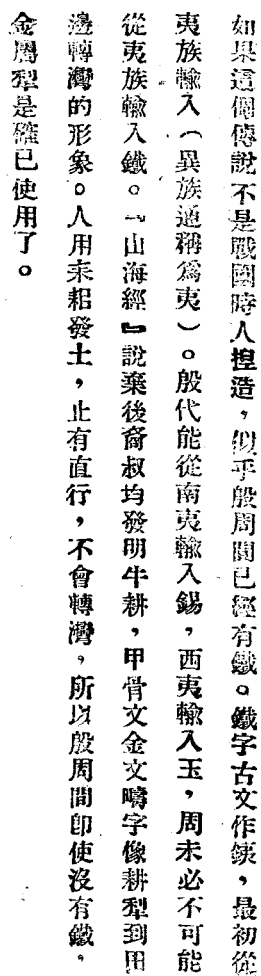 如果這個傳說不是戰國時人捏造，似乎殷周間已經有鐵。鐵字古文作銕，最初從
夷族輸入（異族通稱爲夷）。殷代能從南夷輸入錫，西夷輸入玉，周未必不可能
從夷族輸入鐵。『山海經』說棄後裔叔均發明牛耕，甲骨文金文疇字像耕犁到田
邊轉灣的形象。人用耒耜發土，止有直行，不會轉灣，所以殷周間即使沒有鐵，
金屬犁是確已使用了。